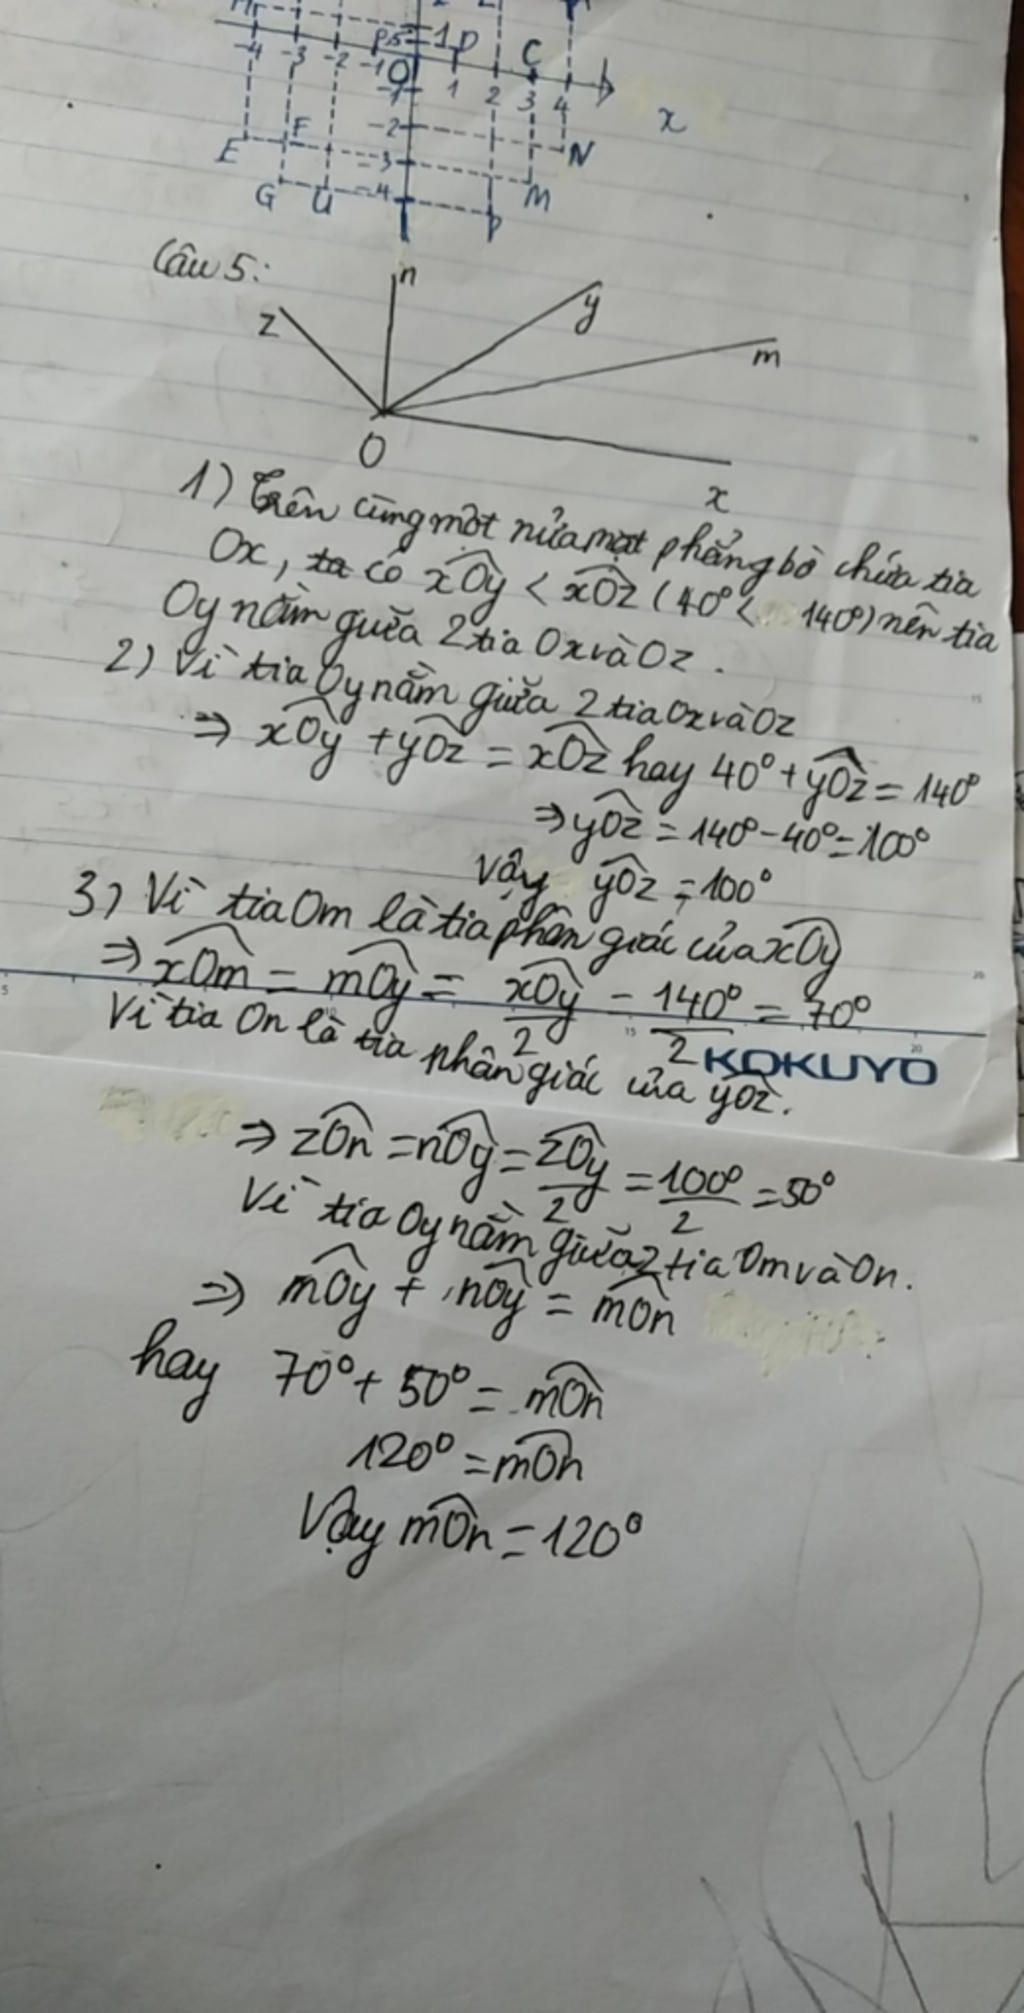 1 P
-4 -3 -2 -1 O 1 2 3 4
C
x
-1
-2
E F -3 N
G U -4 M
P
Câu 5:
n
y
z
m
O
x
1) Trên cùng một nửa mặt phẳng bờ chứa tia
Ox, ta có xOy < xOz (40° < 140°) nên tia
Oy nằm giữa 2 tia Ox và Oz.
2) Vì tia Oy nằm giữa 2 tia Ox và Oz
⇒ xOy + yOz = xOz hay 40° + yOz = 140°
⇒ yOz = 140° - 40° = 100°
Vậy yOz = 100°
3) Vì tia Om là tia phân giác của xOy
⇒ xOm = mOy = xOy/2 = 140°/2 = 70°
Vì tia On là tia phân giác của yOz.
KOKUYO
⇒ zOn = nOy = zOy/2 = 100°/2 = 50°
Vì tia Oy nằm giữa 2 tia Om và On.
⇒ mOy + nOy = mOn
hay 70° + 50° = mOn
120° = mOn
Vậy mOn = 120°